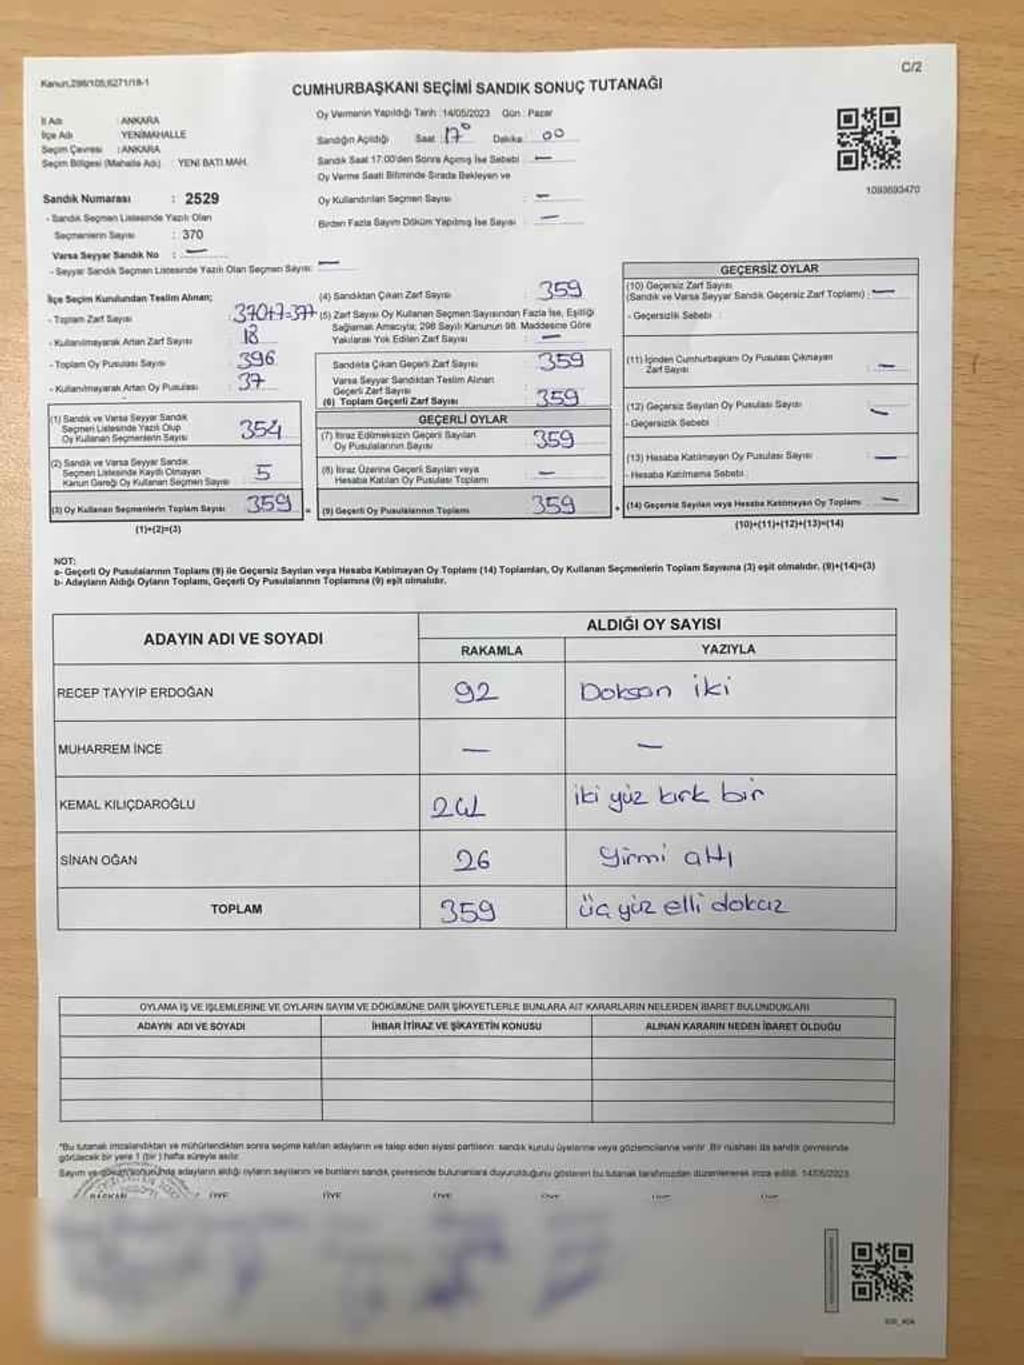 Kanun,298/105,6271/18-1
C/2
CUMHURBAŞKANI SEÇİMİ SANDIK SONUÇ TUTANAĞI
İl Adı : ANKARA
İlçe Adı : YENİMAHALLE
Seçim Çevresi : ANKARA
Seçim Bölgesi (Mahalle Adı) : YENİ BATI MAH.
Sandık Numarası : 2529
- Sandık Seçmen Listesinde Yazılı Olan
Seçmenlerin Sayısı : 370
Varsa Seyyar Sandık No : —
- Seyyar Sandık Seçmen Listesinde Yazılı Olan Seçmen Sayısı: —
Oy Vermenin Yapıldığı Tarih :14/05/2023 Gün : Pazar
Sandığın Açıldığı Saat 17⁰ Dakika 00
Sandık Saat 17:00'den Sonra Açılmış İse Sebebi : —
Oy Verme Saati Bitiminde Sırada Bekleyen ve
Oy Kullandırılan Seçmen Sayısı : —
Birden Fazla Sayım Döküm Yapılmış İse Sayısı : —
1093693470
İlçe Seçim Kurulundan Teslim Alınan;
- Toplam Zarf Sayısı : 370+7=377
- Kullanılmayarak Artan Zarf Sayısı : 18
- Toplam Oy Pusulası Sayısı : 396
- Kullanılmayarak Artan Oy Pusulası : 37
(1) Sandık ve Varsa Seyyar Sandık
Seçmen Listesinde Yazılı Olup
Oy Kullanan Seçmenlerin Sayısı : 354
(2) Sandık ve Varsa Seyyar Sandık
Seçmen Listesinde Kayıtlı Olmayan
Kanun Gereği Oy Kullanan Seçmen Sayısı : 5
(3) Oy Kullanan Seçmenlerin Toplam Sayısı : 359
(1)+(2)=(3)
(4) Sandıktan Çıkan Zarf Sayısı : 359
(5) Zarf Sayısı Oy Kullanan Seçmen Sayısından Fazla İse, Eşitliği
Sağlamak Amacıyla; 298 Sayılı Kanunun 98. Maddesine Göre
Yakılarak Yok Edilen Zarf Sayısı : —
Sandıkta Çıkan Geçerli Zarf Sayısı : 359
Varsa Seyyar Sandıktan Teslim Alınan
Geçerli Zarf Sayısı :
(6) Toplam Geçerli Zarf Sayısı : 359
GEÇERLİ OYLAR
(7) İtiraz Edilmeksizin Geçerli Sayılan
Oy Pusulalarının Sayısı : 359
(8) İtiraz Üzerine Geçerli Sayılan veya
Hesaba Katılan Oy Pusulası Toplamı : —
= (9) Geçerli Oy Pusulalarının Toplamı : 359
GEÇERSİZ OYLAR
(10) Geçersiz Zarf Sayısı
(Sandık ve Varsa Seyyar Sandık Geçersiz Zarf Toplamı) : —
- Geçersizlik Sebebi :
(11) İçinden Cumhurbaşkanı Oy Pusulası Çıkmayan
Zarf Sayısı : —
(12) Geçersiz Sayılan Oy Pusulası Sayısı : —
- Geçersizlik Sebebi :
(13) Hesaba Katılmayan Oy Pusulası Sayısı : —
- Hesaba Katılmama Sebebi :
+ (14) Geçersiz Sayılan veya Hesaba Katılmayan Oy Toplamı : —
(10)+(11)+(12)+(13)=(14)
NOT:
a- Geçerli Oy Pusulalarının Toplamı (9) ile Geçersiz Sayılan veya Hesaba Katılmayan Oy Toplamı (14) Toplamları, Oy Kullanan Seçmenlerin Toplam Sayısına (3) eşit olmalıdır. (9)+(14)=(3)
b- Adayların Aldığı Oyların Toplamı, Geçerli Oy Pusulalarının Toplamına (9) eşit olmalıdır.
ADAYIN ADI VE SOYADI
ALDIĞI OY SAYISI
RAKAMLA YAZIYLA
RECEP TAYYİP ERDOĞAN 92 Doksan iki
MUHARREM İNCE — —
KEMAL KILIÇDAROĞLU 241 iki yüz kırk bir
SİNAN OĞAN 26 yirmi altı
TOPLAM 359 üç yüz elli dokuz
OYLAMA İŞ VE İŞLEMLERİNE VE OYLARIN SAYIM VE DÖKÜMÜNE DAİR ŞİKAYETLERLE BUNLARA AİT KARARLARIN NELERDEN İBARET BULUNDUKLARI
ADAYIN ADI VE SOYADI İHBAR İTİRAZ VE ŞİKAYETİN KONUSU ALINAN KARARIN NEDEN İBARET OLDUĞU
*Bu tutanak imzalandıktan ve mühürlendikten sonra seçime katılan adayların ve talep eden siyasi partilerin sandık kurulu üyelerine veya gözlemcilerine verilir. Bir nüshası da sandık çevresinde
görülecek bir yere 1 (bir) hafta süreyle asılır.
Sayım ve döküm sonunda adayların aldığı oyların sayılarını ve bunların sandık çevresinde bulunanlara duyurulduğunu gösteren bu tutanak tarafımızdan düzenlenerek imza edildi. 14/05/2023
BAŞKAN ÜYE ÜYE ÜYE ÜYE ÜYE ÜYE